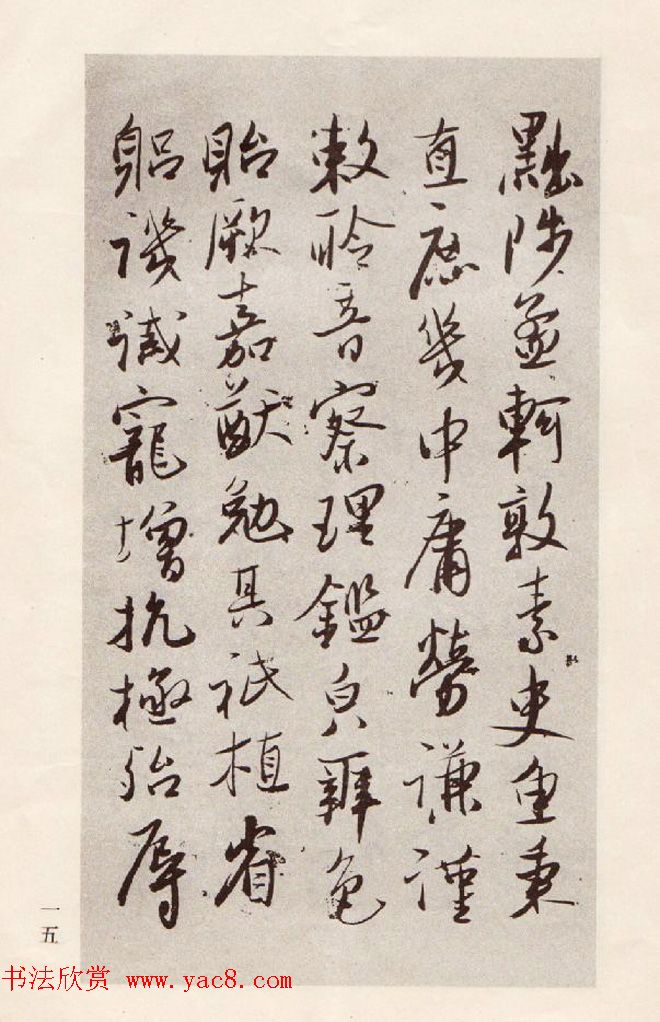 黜陟孟軻敦素史魚秉
直庶幾中庸勞謙謹
敕聆音察理鑑皃辨色
貽厥嘉猷勉其祗植省
躬譏誡寵增抗極殆辱
一五
书法欣赏 www.yac8.com